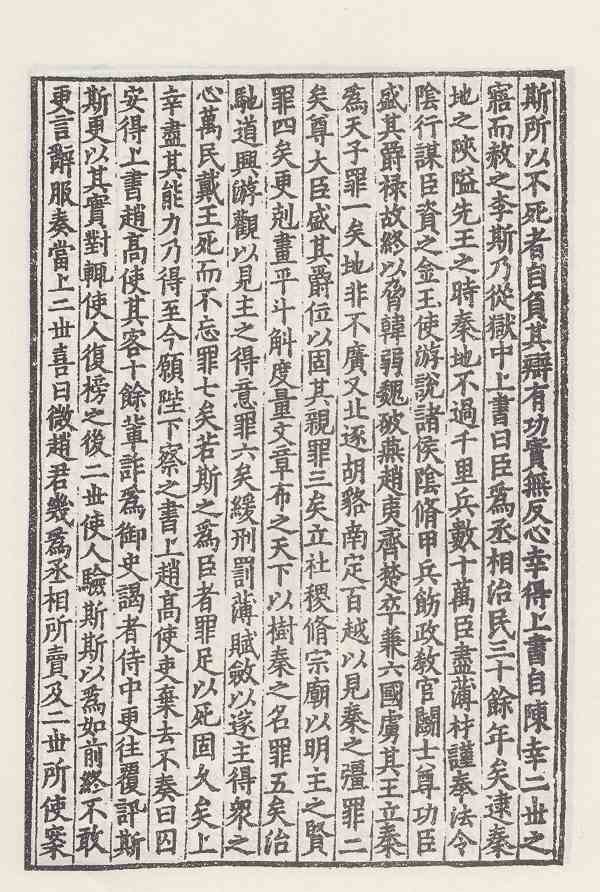 斯所以不死者自負其辯有功實無反心幸得上書自陳幸二丗之
寤而赦之李斯乃從獄中上書曰臣為丞相治民三十餘年矣逮秦
地之陝隘先王之時秦地不過千里兵數十萬臣盡薄材謹奉法令
陰行謀臣資之金玉使游說諸侯陰脩甲兵飭政教官鬭士尊功臣
盛其爵祿故終以脅韓弱魏破燕趙夷齊楚卒兼六國虜其王立秦
為天子罪一矣地非不廣又北逐胡貉南定百越以見秦之彊罪二
矣尊大臣盛其爵位以固其親罪三矣立社稷脩宗廟以明主之賢
罪四矣更剋畫平斗斛度量文章布之天下以樹秦之名罪五矣治
馳道興游觀以見主之得意罪六矣緩刑罰薄賦斂以遂主得衆之
心萬民戴王死而不忘罪七矣若斯之為臣者罪足以死固久矣上
幸盡其能力乃得至今願陛下察之書上趙高使吏棄去不奏曰囚
安得上書趙高使其客十餘輩詐為御史謁者侍中更往覆訊斯
斯更以其實對輒使人復榜之後二丗使人驗斯斯以為如前終不敢
更言辭服奏當上二丗喜曰微趙君幾為丞相所賣及二丗所使案